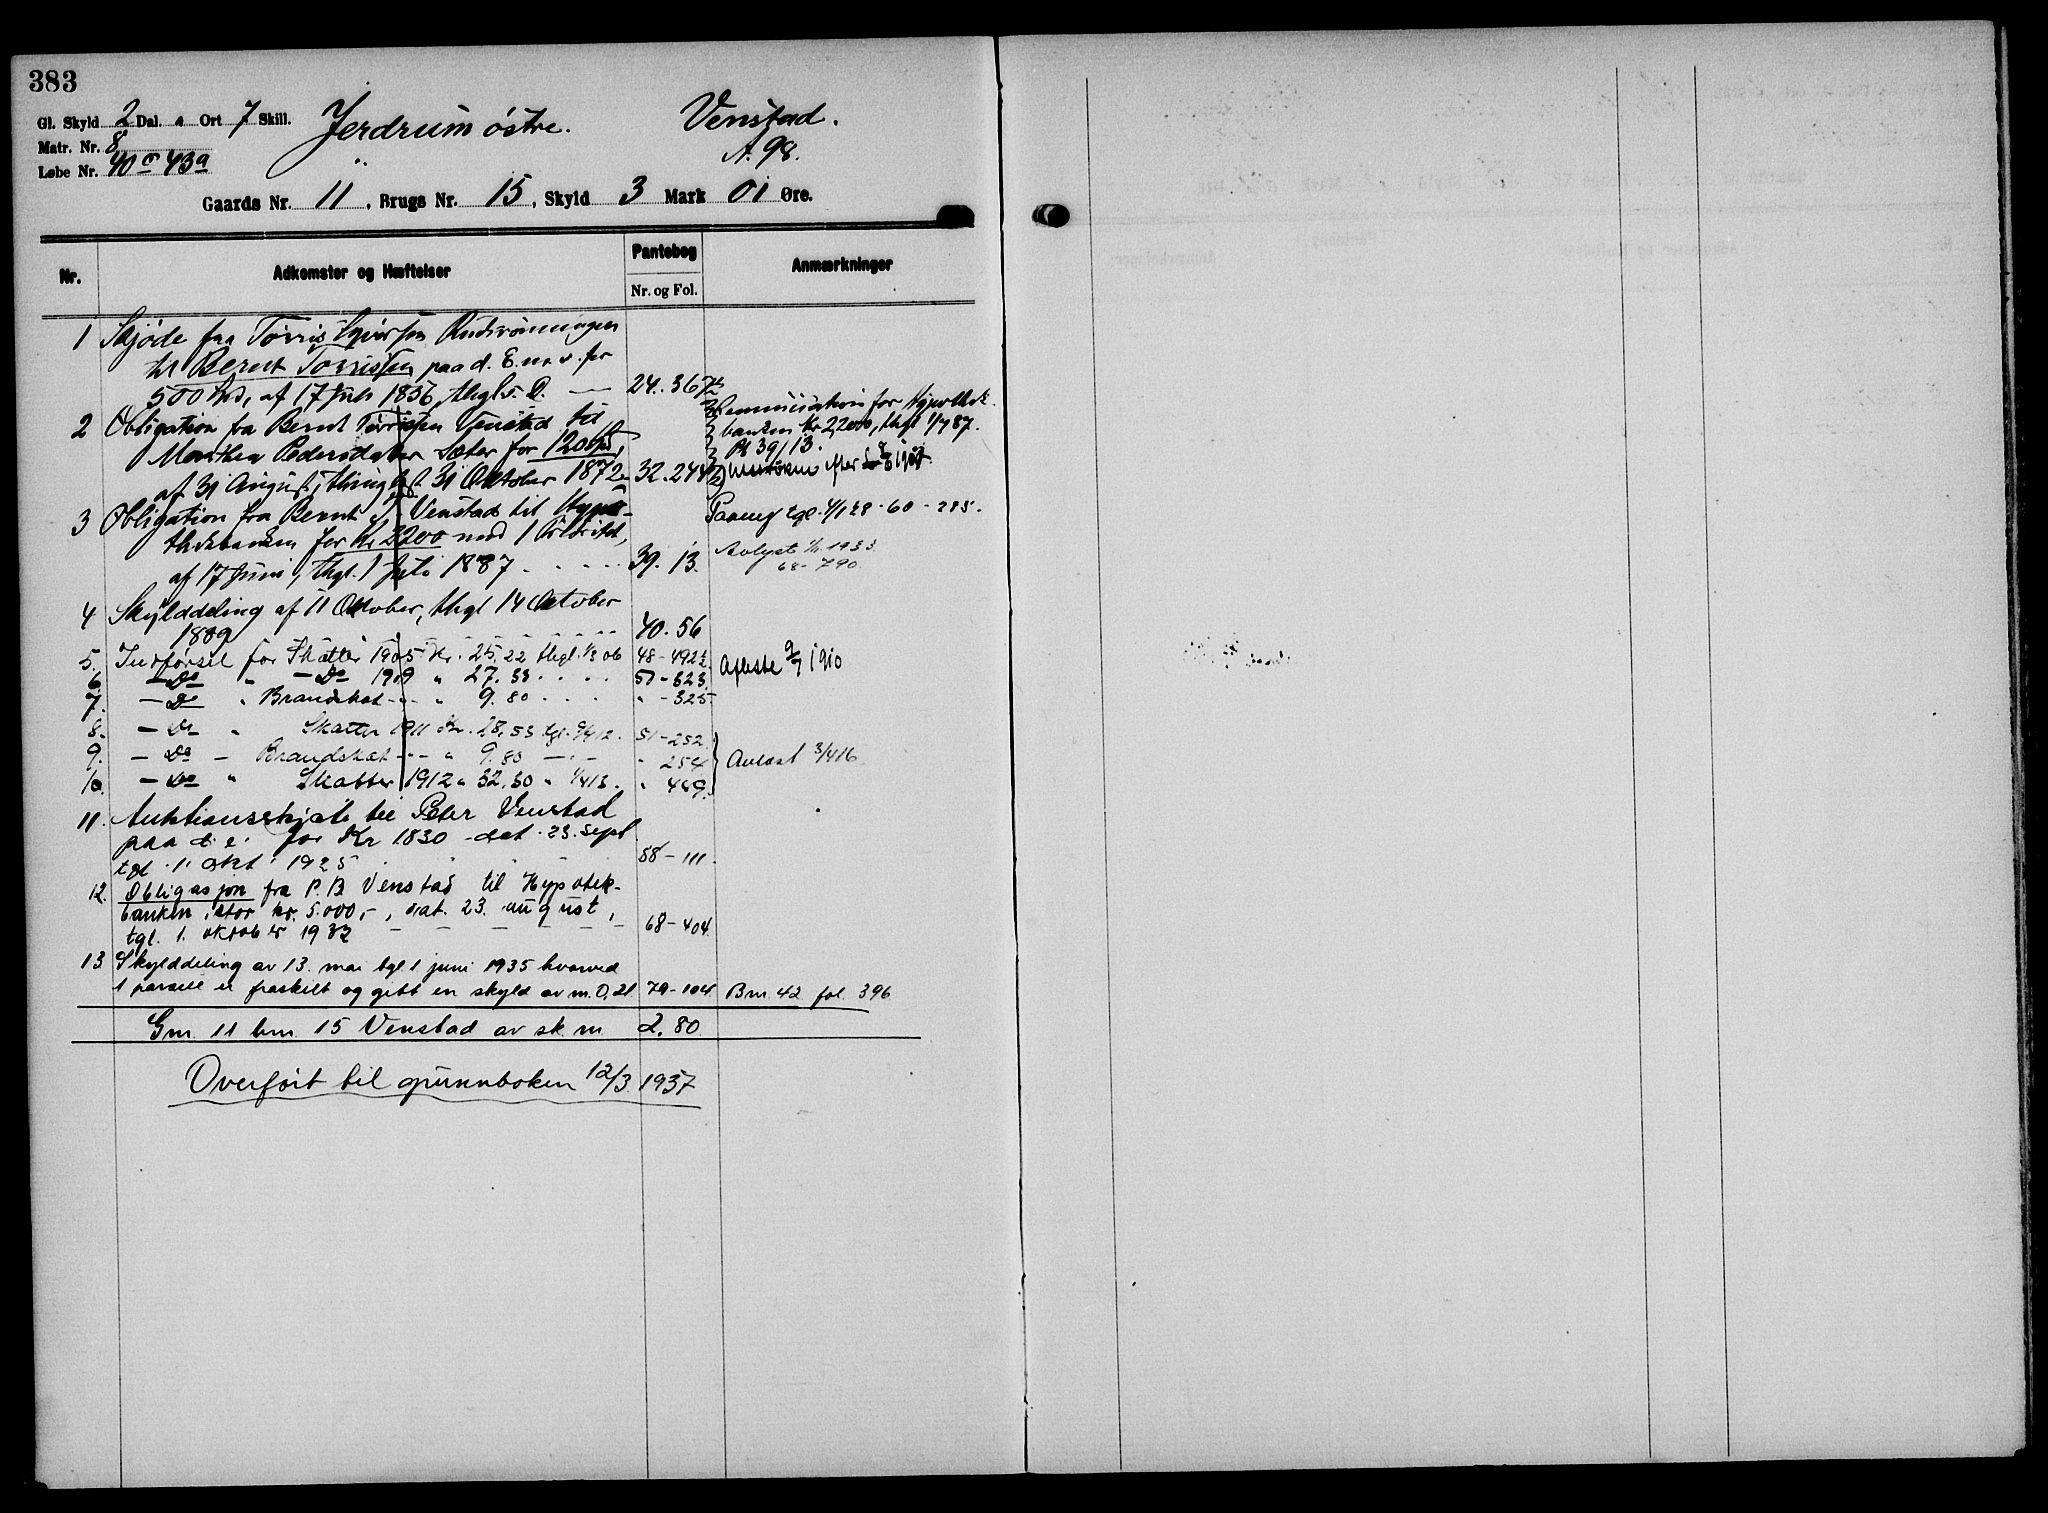 383
Gl. Skyld 2 Dal. " Ort 7 Skill.
Matr. Nr. 8
Løbe Nr. 40c 43a
Jerdrum østre.
Venstad.
A. 98.
Gaards Nr. 11, Brugs Nr. 15, Skyld 3 Mark 01 Øre.
Nr.
Adkomster og Hæftelser
Pantebog
Nr. og Fol.
Anmærkninger
1 Skjøde fra Tørris Rudsrønningen
til Bernt Torrissen paa d. E. m. v. for
500 Spd, af 17 Juli 1856, thgl. s. D. 24. 367
2 Obligation fra Bernt Tørrissen Venstad til
Marthea Pedersdatter Sæter for 120 Spd,
af 31 August, thinglæst 31 Oktober 1872 32. 244
3 Obligation fra Bernt T. Venstad til Hypo-
thekbanken for Kr 2200 med 1 Prioritet,
af 17 Juni, thgl. 1 Juli 1887 39. 13.
for Hypothek
banken kr 2200, thgl 1/7 87.
Pb 39/13.
efter
tgl. 4/1 28 - 60 - 285.
Avlyst 1933
68 - 790
4 Skylddeling af 11 Oktober, thgl 14 Oktober
1889 40. 56
5. Indførsel for Skatter 1905 Kr. 25,22 thgl. 1/3 06 48 - 492
6. - Do " - Do 1909 " 27.33 50 - 323
7. - Do " Brandskat - " 9.80 " - 325
Aflæste 9/7 1910
8. - Do " Skatter 1911 Kr. 28,53 tgl. 51 - 252
9. - Do - Brandskat - - " 9.80 - " - " 254
10. - Do " Skatter 1912 " 32,30 " 1/4 13. " 469.
Avlæst 3/4 16
11. Auktionsskjøte til Peter Venstad
paa d. e. for Kr 1830 - dat. 23. sept
tgl. 1. okt. 1925 58 - 111.
12. Obligasjon fra P. B. Venstad til Hypotek-
banken, stor kr. 5.000,-, dat. 23. august,
tgl. 1. oktober 1932 - - - - - - 68 - 404.
13 Skylddeling av 13. mai tgl 1 juni 1935 hvorved
1 parsell er fraskilt og gitt en skyld av m. 0,21. 79 - 104 Bnr. 42 fol. 396
Gnr. 11 bnr. 15 Venstad av sk. m 2.80
Overført til grunnboken 12/3 1937